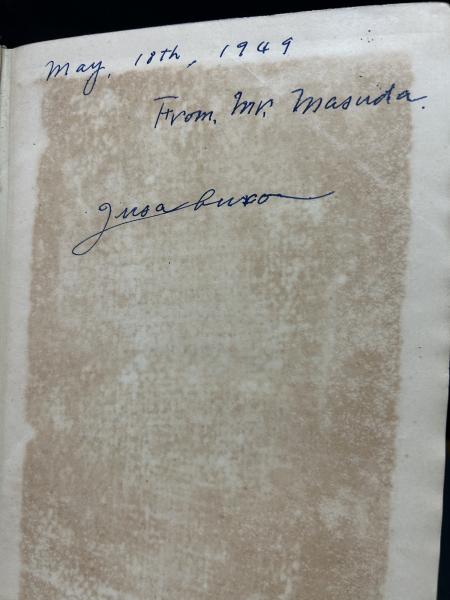 May, 18th, 1949
From, Mr. Masuda.